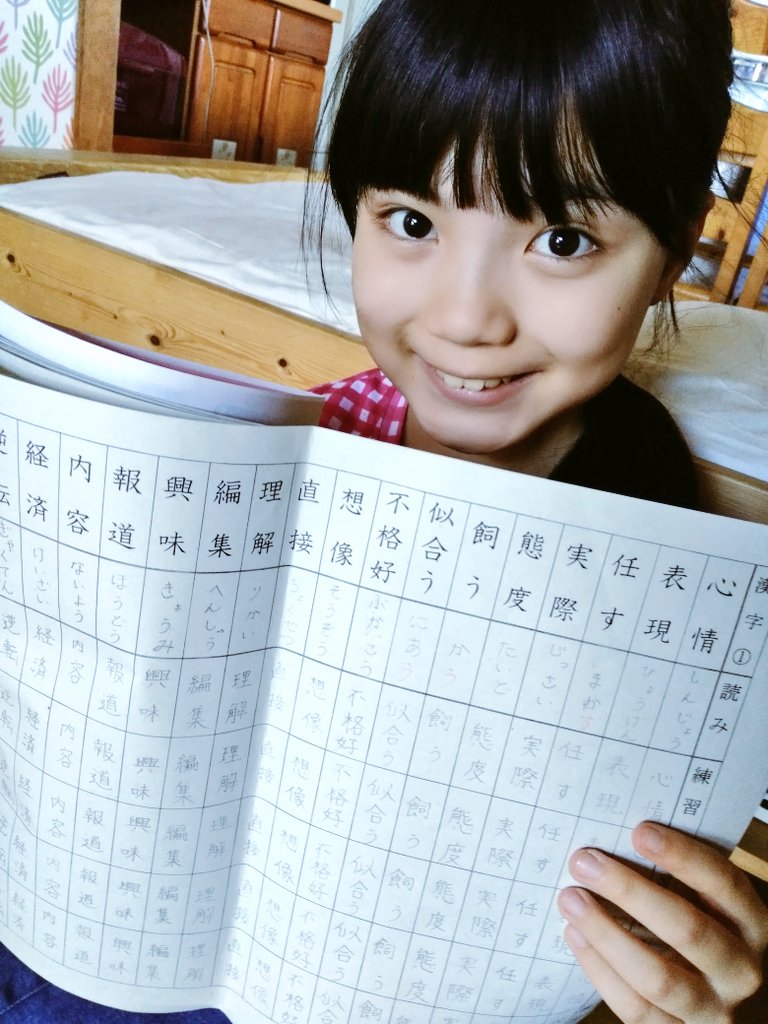 漢字① 読み 練習
心情 しんじょう 心情
表現 ひょうげん 表現 現 表現
任す まかす 任す 任す 任す 任す
実際 じっさい 実際 実際 実際 実際
態度 たいど 態度 態度 態度 態度
飼う かう 飼う 飼う 飼う 飼う 飼
似合う にあう 似合う 似合う 似合う 似合う 似合う
不格好 ぶかっこう 不格好 不格好 不格好 不格好 不格好
想像 そうぞう 想像 想像 想像 想像 想像
直接 ちょくせつ 直接 直接 直接 直接 直接
理解 りかい 理解 理解 理解 理解 理解
編集 へんしゅう 編集 編集 編集 編集 編集
興味 きょうみ 興味 興味 興味 興味 興味
報道 ほうどう 報道 報道 報道 報道 報道
内容 ないよう 内容 内容 内容 内容 内容
経済 けいざい 経済 経済 経済 経済 経済
逆転 ぎゃくてん 逆転 逆転